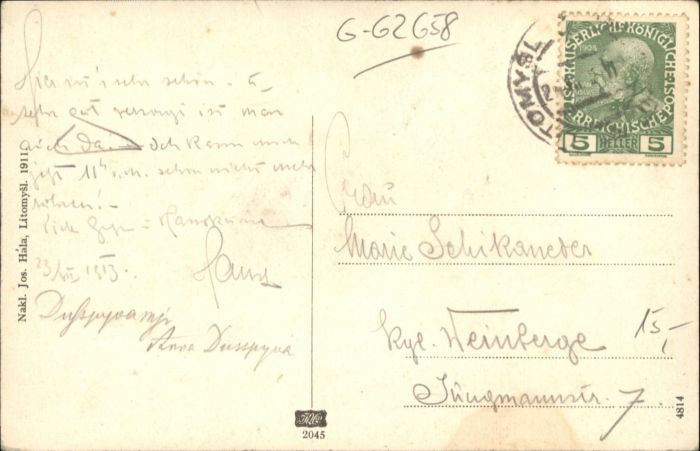 G-62658
Hier ist's sehr schön.
sehr gut versorgt ist man
auch da. Ich kann mich
jetzt 11h schon nicht mehr
Viele Handküsse
Hans
23/VII 1913.
Anna Dusspyva
Nakl. Jos. Hála, Litomyšl. 1911.
2045
TOMYŠL
1908
KAISERLICHE KÖNIGLICHE
ÖSTERREICHISCHE POST
5 HELLER 5
Frau
Marie Schikaneder
Kgl. Weinberge
Jungmannstr. 7.
15,-
4814